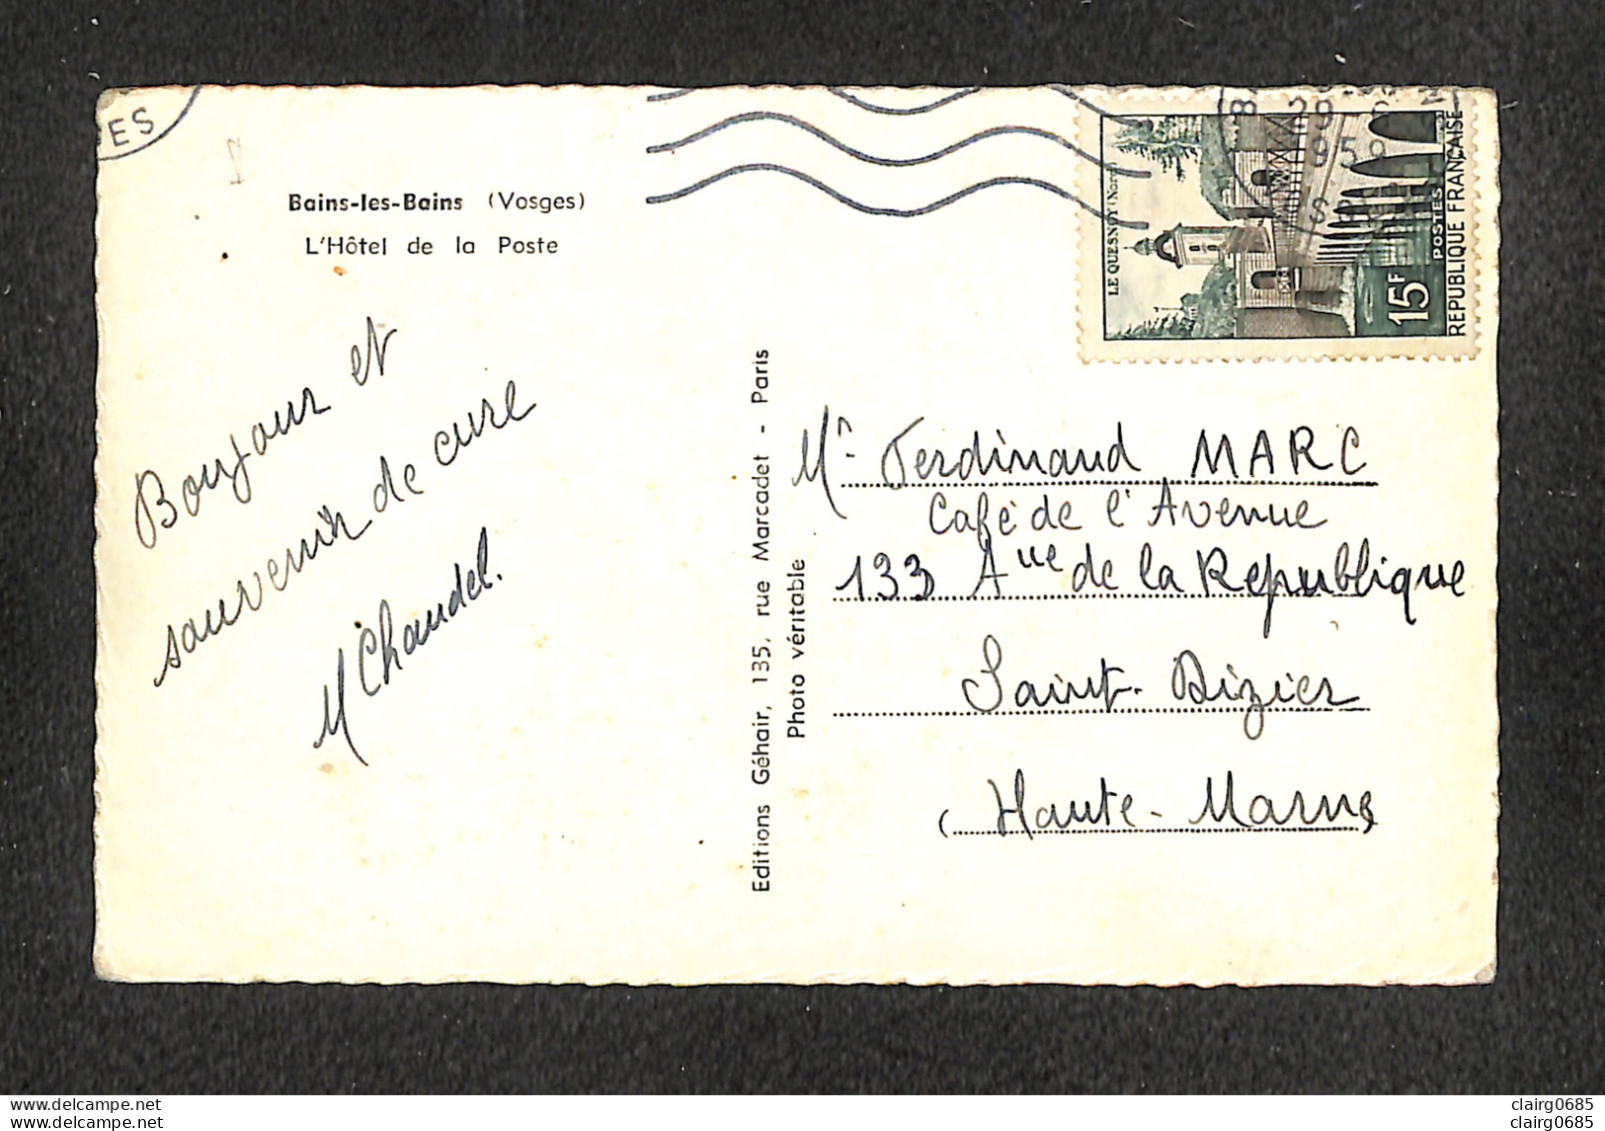 ES
Bains-les-Bains (Vosges)
L'Hôtel de la Poste
Bonjour et
souvenir de cure
M Chaudel.
Editions Géhair, 135, rue Marcadet - Paris
Photo véritable
LE QUESNOY (Nord)
15F
POSTES
REPUBLIQUE FRANÇAISE
Mr Ferdinand MARC
Café de l'Avenue
133 Aue de la République
Saint-Dizier
(Haute-Marne
www.delcampe.net
www.delcampe.net
clairg0685
clairg0685